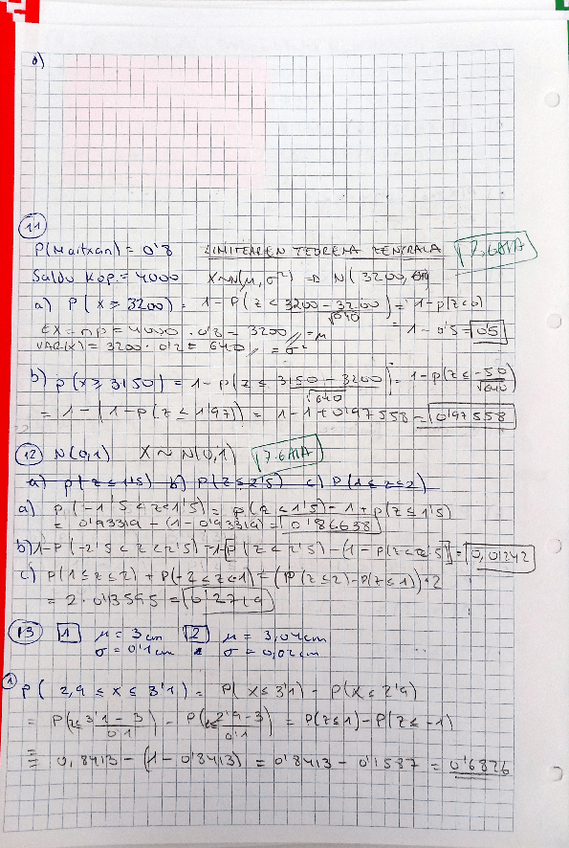 a)
11
P(Maitxan) = 0'8 LIMITEAREN TEOREMA ZENTRALA 7. GAIA
Saldu kop. = 4000 X~N(μ, σ²) ⇒ N(3200,
a) P(X ≥ 3200) = 1-P(Z < 3200 - 3200 / √640) = 1-p(Z<0)
EX = np = 4000 · 0'8 = 3200 // = μ = 1 - 0'5 = 0'5
VAR(X) = 3200 · 0'2 = 640 // = σ²
b) p(X ≥ 3150) = 1-P(Z ≤ 3150 - 3200 / √640) = 1-p(Z ≤ -50 / √640)
= 1 - (1-p(Z ≤ 1'97)) = 1-1+0'97558 = 0'97558
12 N(0,1) X ~ N(0,1) 7. GAIA
a) p(Z ≤ 1'5) b) P(Z ≤ 2'5) c) P(1 ≤ Z ≤ 2)
a) P(-1'5 < Z < 1'5) = p(Z < 1'5) - 1 + p(Z ≤ 1'5)
= 0'93319 - (1 - 0'93319) = 0'86638
b) 1-P(-2'5 < Z < 2'5) = 1-[P(Z ≤ 2'5) - (1-P(Z<2'5)] = 0,01242
c) P(1 ≤ Z ≤ 2) + P(-2 ≤ Z ≤ 1) = (P(Z ≤ 2) - P(Z ≤ 1)) · 2
= 2 · 0'13595 = 0'2719
13 1 μ = 3 cm 2 μ = 3,04 cm
σ = 0'1 cm σ = 0,02 cm
1 P(2,9 ≤ X ≤ 3'1) = P(X ≤ 3'1) - P(X ≤ 2'9)
= P(Z ≤ 3'1 - 3 / 0'1) - P(Z ≤ 2'9 - 3 / 0'1) = P(Z ≤ 1) - P(Z ≤ -1)
= 0,8413 - (1 - 0'8413) = 0'8413 - 0'1587 = 0'6826